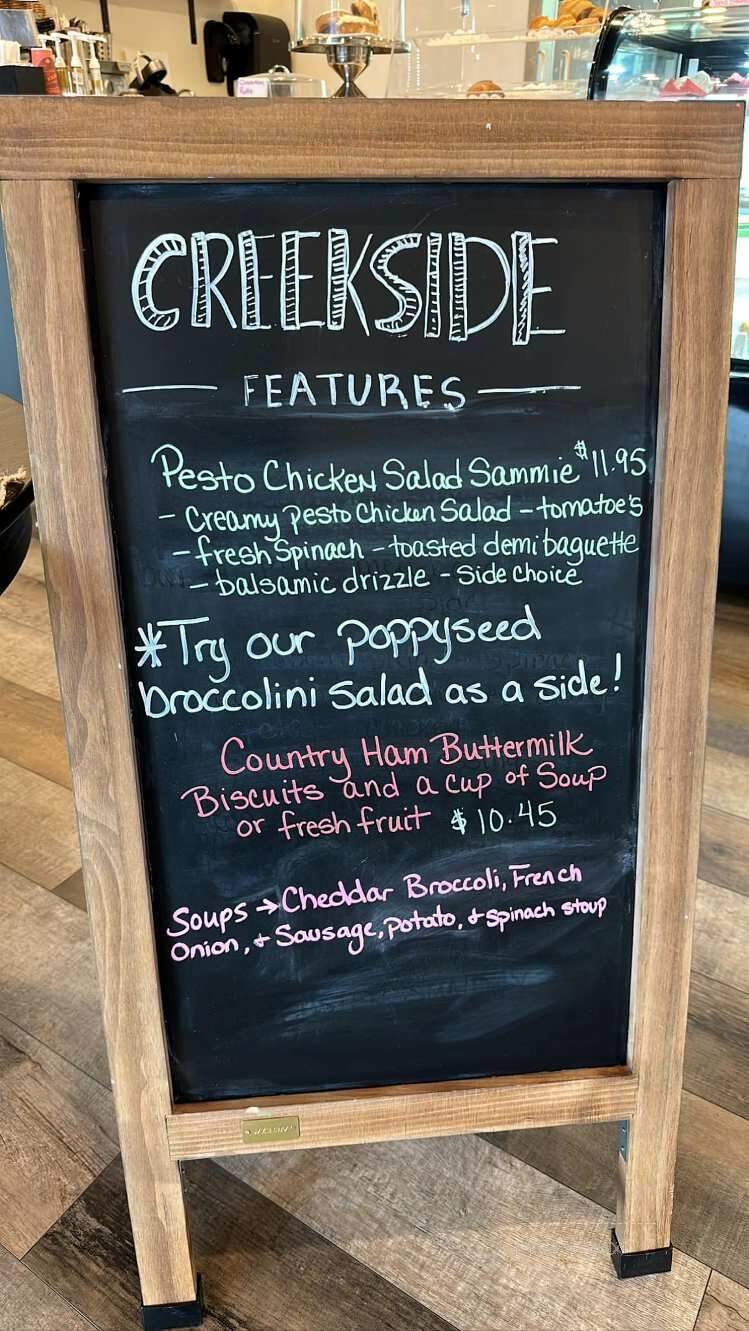 CREEKSIDE
FEATURES
Pesto Chicken Salad Sammie $11.95
- Creamy pesto Chicken Salad - tomatoe's
- fresh Spinach - toasted demi baguette
- balsamic drizzle - Side Choice
*Try our poppyseed
broccolini salad as a side!
Country Ham Buttermilk
Biscuits and a cup of Soup
or fresh fruit $10.45
Soups → Cheddar Broccoli, French
Onion, & Sausage, potato, & spinach stoup